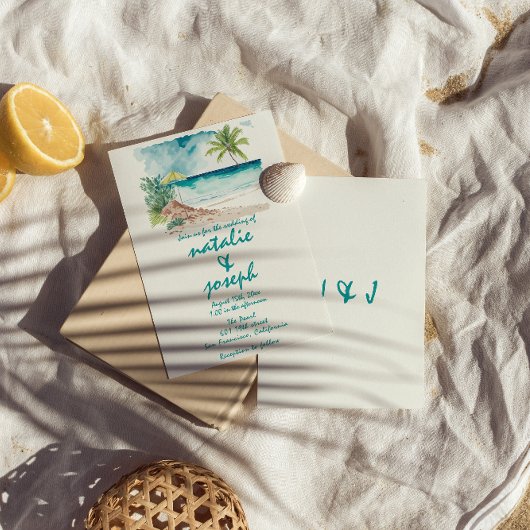 Join us for the wedding of
natalie
&
joseph
August 15th, 20xx
1.00 in the afternoon
The Pearl
601 19th street
San Francisco, California
Reception to follow
& J